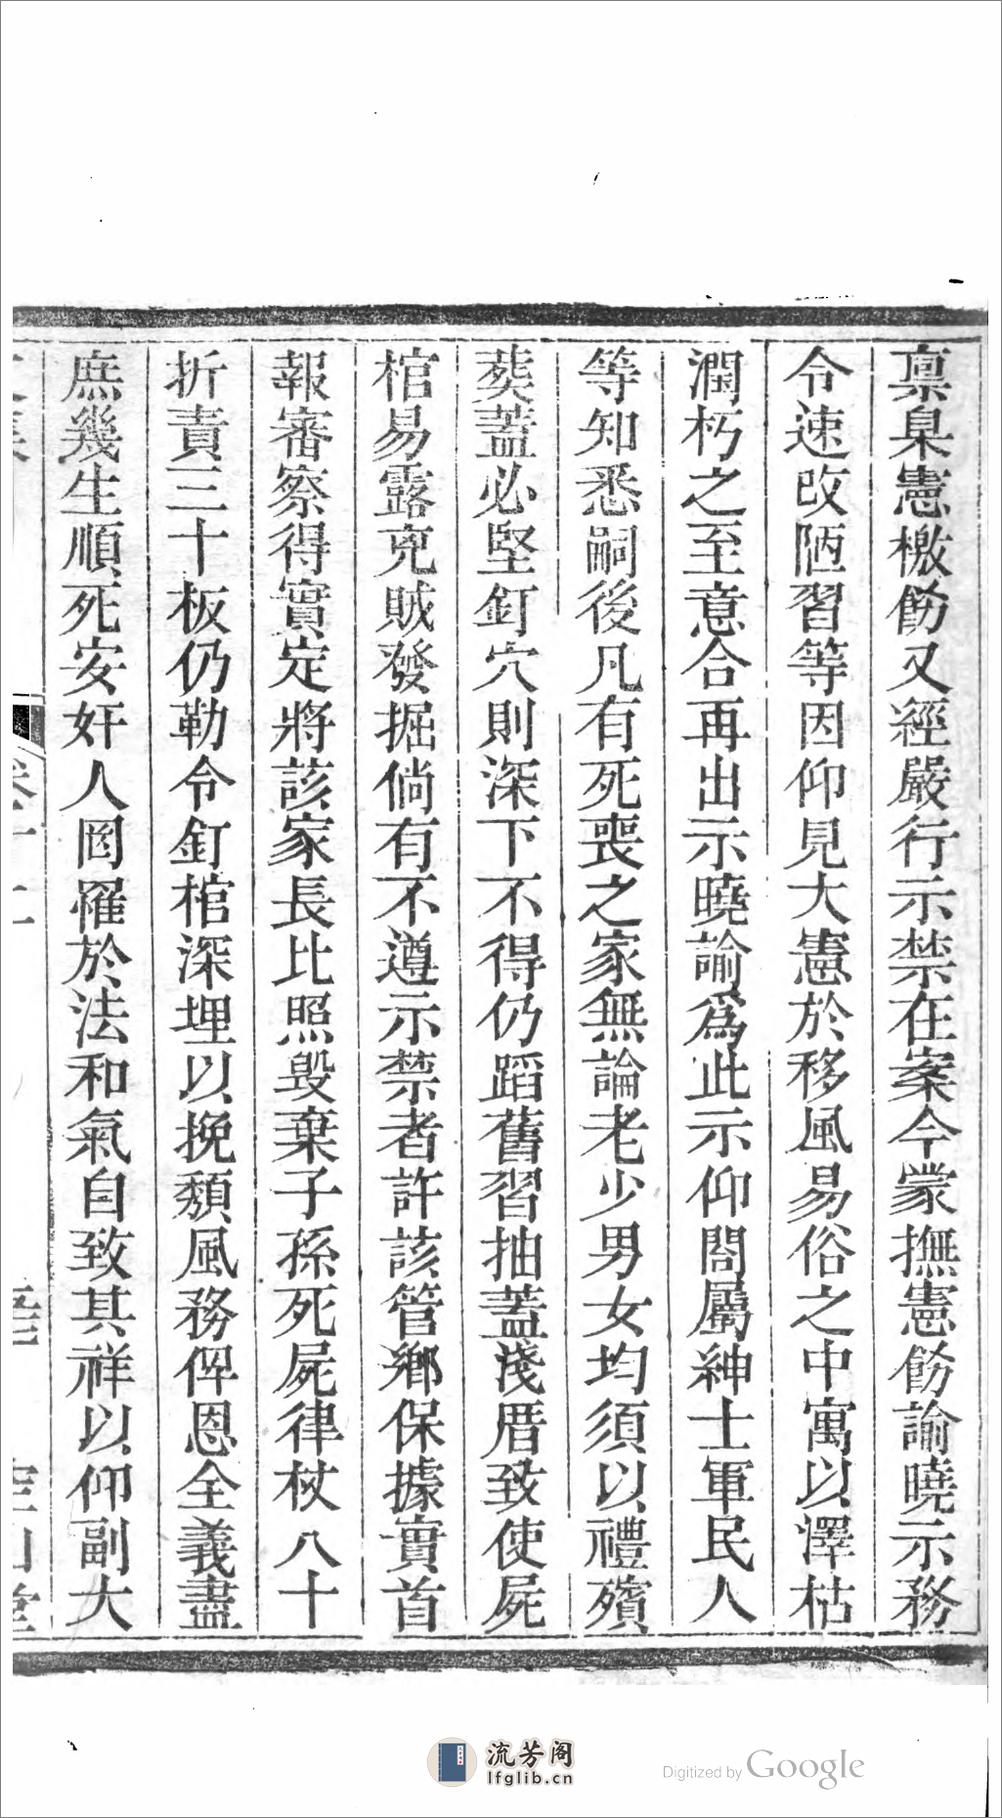 稟臬憲檄飭又經嚴行示禁在案今蒙撫憲飭諭曉示務
令速改陋習等因仰見大憲於移風易俗之中寓以澤枯
潤朽之至意合再出示曉諭爲此示仰閤屬紳士軍民人
等知悉嗣後凡有死喪之家無論老少男女均須以禮殯
葬蓋必堅釘穴則深下不得仍蹈舊習抽蓋淺厝致使屍
棺易露兇賊發掘倘有不遵示禁者許該管鄉保據實首
報審察得實定將該家長比照毀棄子孫死屍律杖八十
折責三十板仍勒令釘棺深埋以挽頽風務俾恩全義盡
庶幾生順死安奸人罔罹於法和氣自致其祥以仰副大
流芳阁
lfglib.cn
Digitized by Google